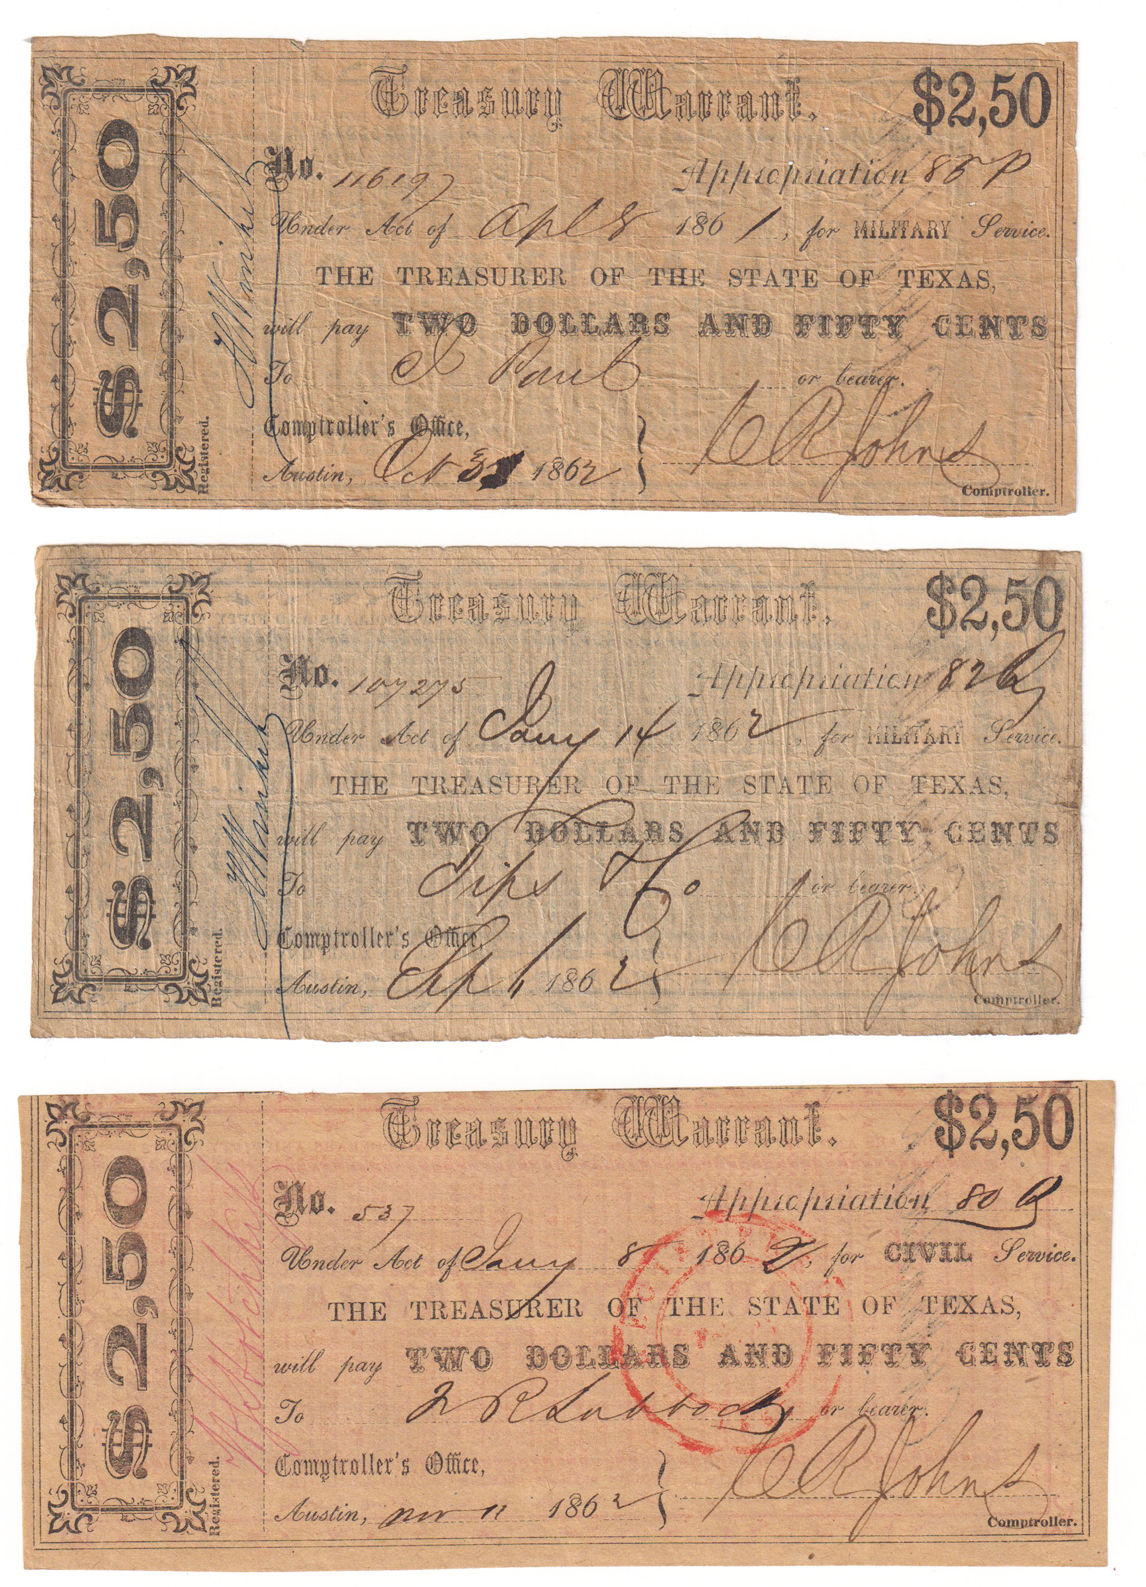 Treasury Warrant. $2,50
$2,50
No. 116197 Appropriation 85 P
Under Act of Apl 8 1861, for MILITARY Service.
THE TREASURER OF THE STATE OF TEXAS,
will pay TWO DOLLARS AND FIFTY CENTS
To J Paul or bearer.
Comptroller's Office,
Austin, Oct 31 1862 C R Johns
Comptroller.
Registered.
Treasury Warrant. $2,50
$2,50
No. 107275 Appropriation 82
Under Act of Jany 14 1862, for MILITARY Service.
THE TREASURER OF THE STATE OF TEXAS,
will pay TWO DOLLARS AND FIFTY CENTS
To Tips & Co or bearer.
Comptroller's Office,
Austin, Sep 1 1862 C R Johns
Comptroller.
Registered.
Treasury Warrant. $2,50
$2,50
No. 537 Appropriation 80
Under Act of Jany 8 1862, for CIVIL Service.
THE TREASURER OF THE STATE OF TEXAS,
will pay TWO DOLLARS AND FIFTY CENTS
To F R Lubbock or bearer.
Comptroller's Office,
Austin, Nov 11 1862 C R Johns
Comptroller.
Registered.